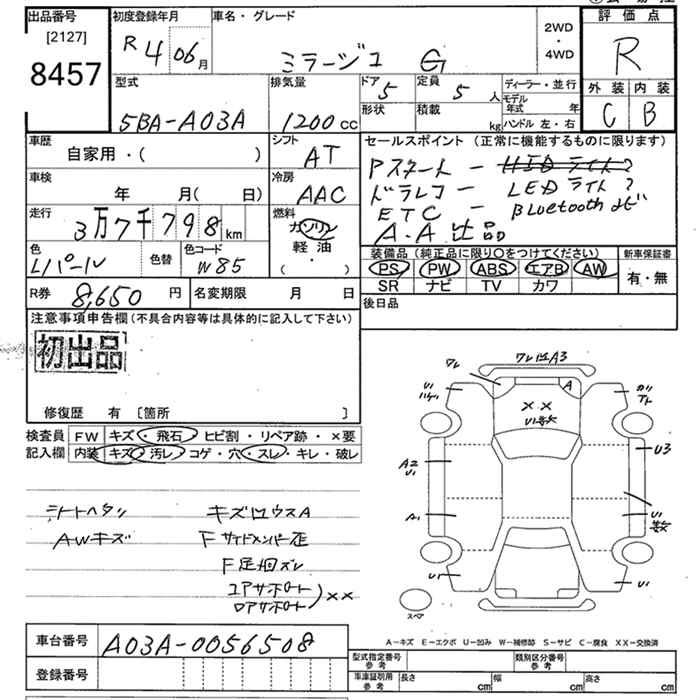 出品番号
[2127]
8457
初度登録年月
R 4 06月
車名・グレード
ミラージュ G
2WD
・
4WD
評価点
R
外装 内装
C B
型式
5BA-A03A
排気量
1200cc
ドア
5
定員
5人
形状
積載
kg
ディーラー・並行
モデル年式 年
ハンドル 左・右
車歴
自家用・( )
シフト
AT
車検
年 月( 日)
冷房
AAC
走行
3万7千798km
燃料
ガソリン
軽油
( ・ )
色
色替
色コード
W85
R券
8,650円
名変期限 月 日
セールスポイント(正常に機能するものに限ります)
Pスタート ー
ドラレコ ー LEDライト
ETC ー Bluetooth
A.A 出品
装備品(純正品に限り○をつけてください)
PS PW ABS エアB AW
SR ナビ TV カワ
新車保証書
有・無
後日品
注意事項申告欄(不具合内容等は具体的に記入して下さい)
初出品
修復歴 有 [箇所 ]
検査員記入欄
FW キズ・飛石・ヒビ割・リペア跡・×要
内装 キズ・汚レ・コゲ・穴・スレ・キレ・破レ
シートヘタリ
AWキズ
Fサイドメンバー歪
F足回ズレ
コアサポート
ロアサポート
××
ワレ
A3
A
××
U1
U1
A2
U1
A1
U1
U3
U1
U1
スペア
A-キズ E-エクボ U-凹み W-補修跡 S-サビ C-腐食 XX-交換済
車台番号
A03A-0056508
登録番号
型式指定番号
参考
類別区分番号
参考
車庫証明用
参考
長さ cm
幅 cm
高さ cm